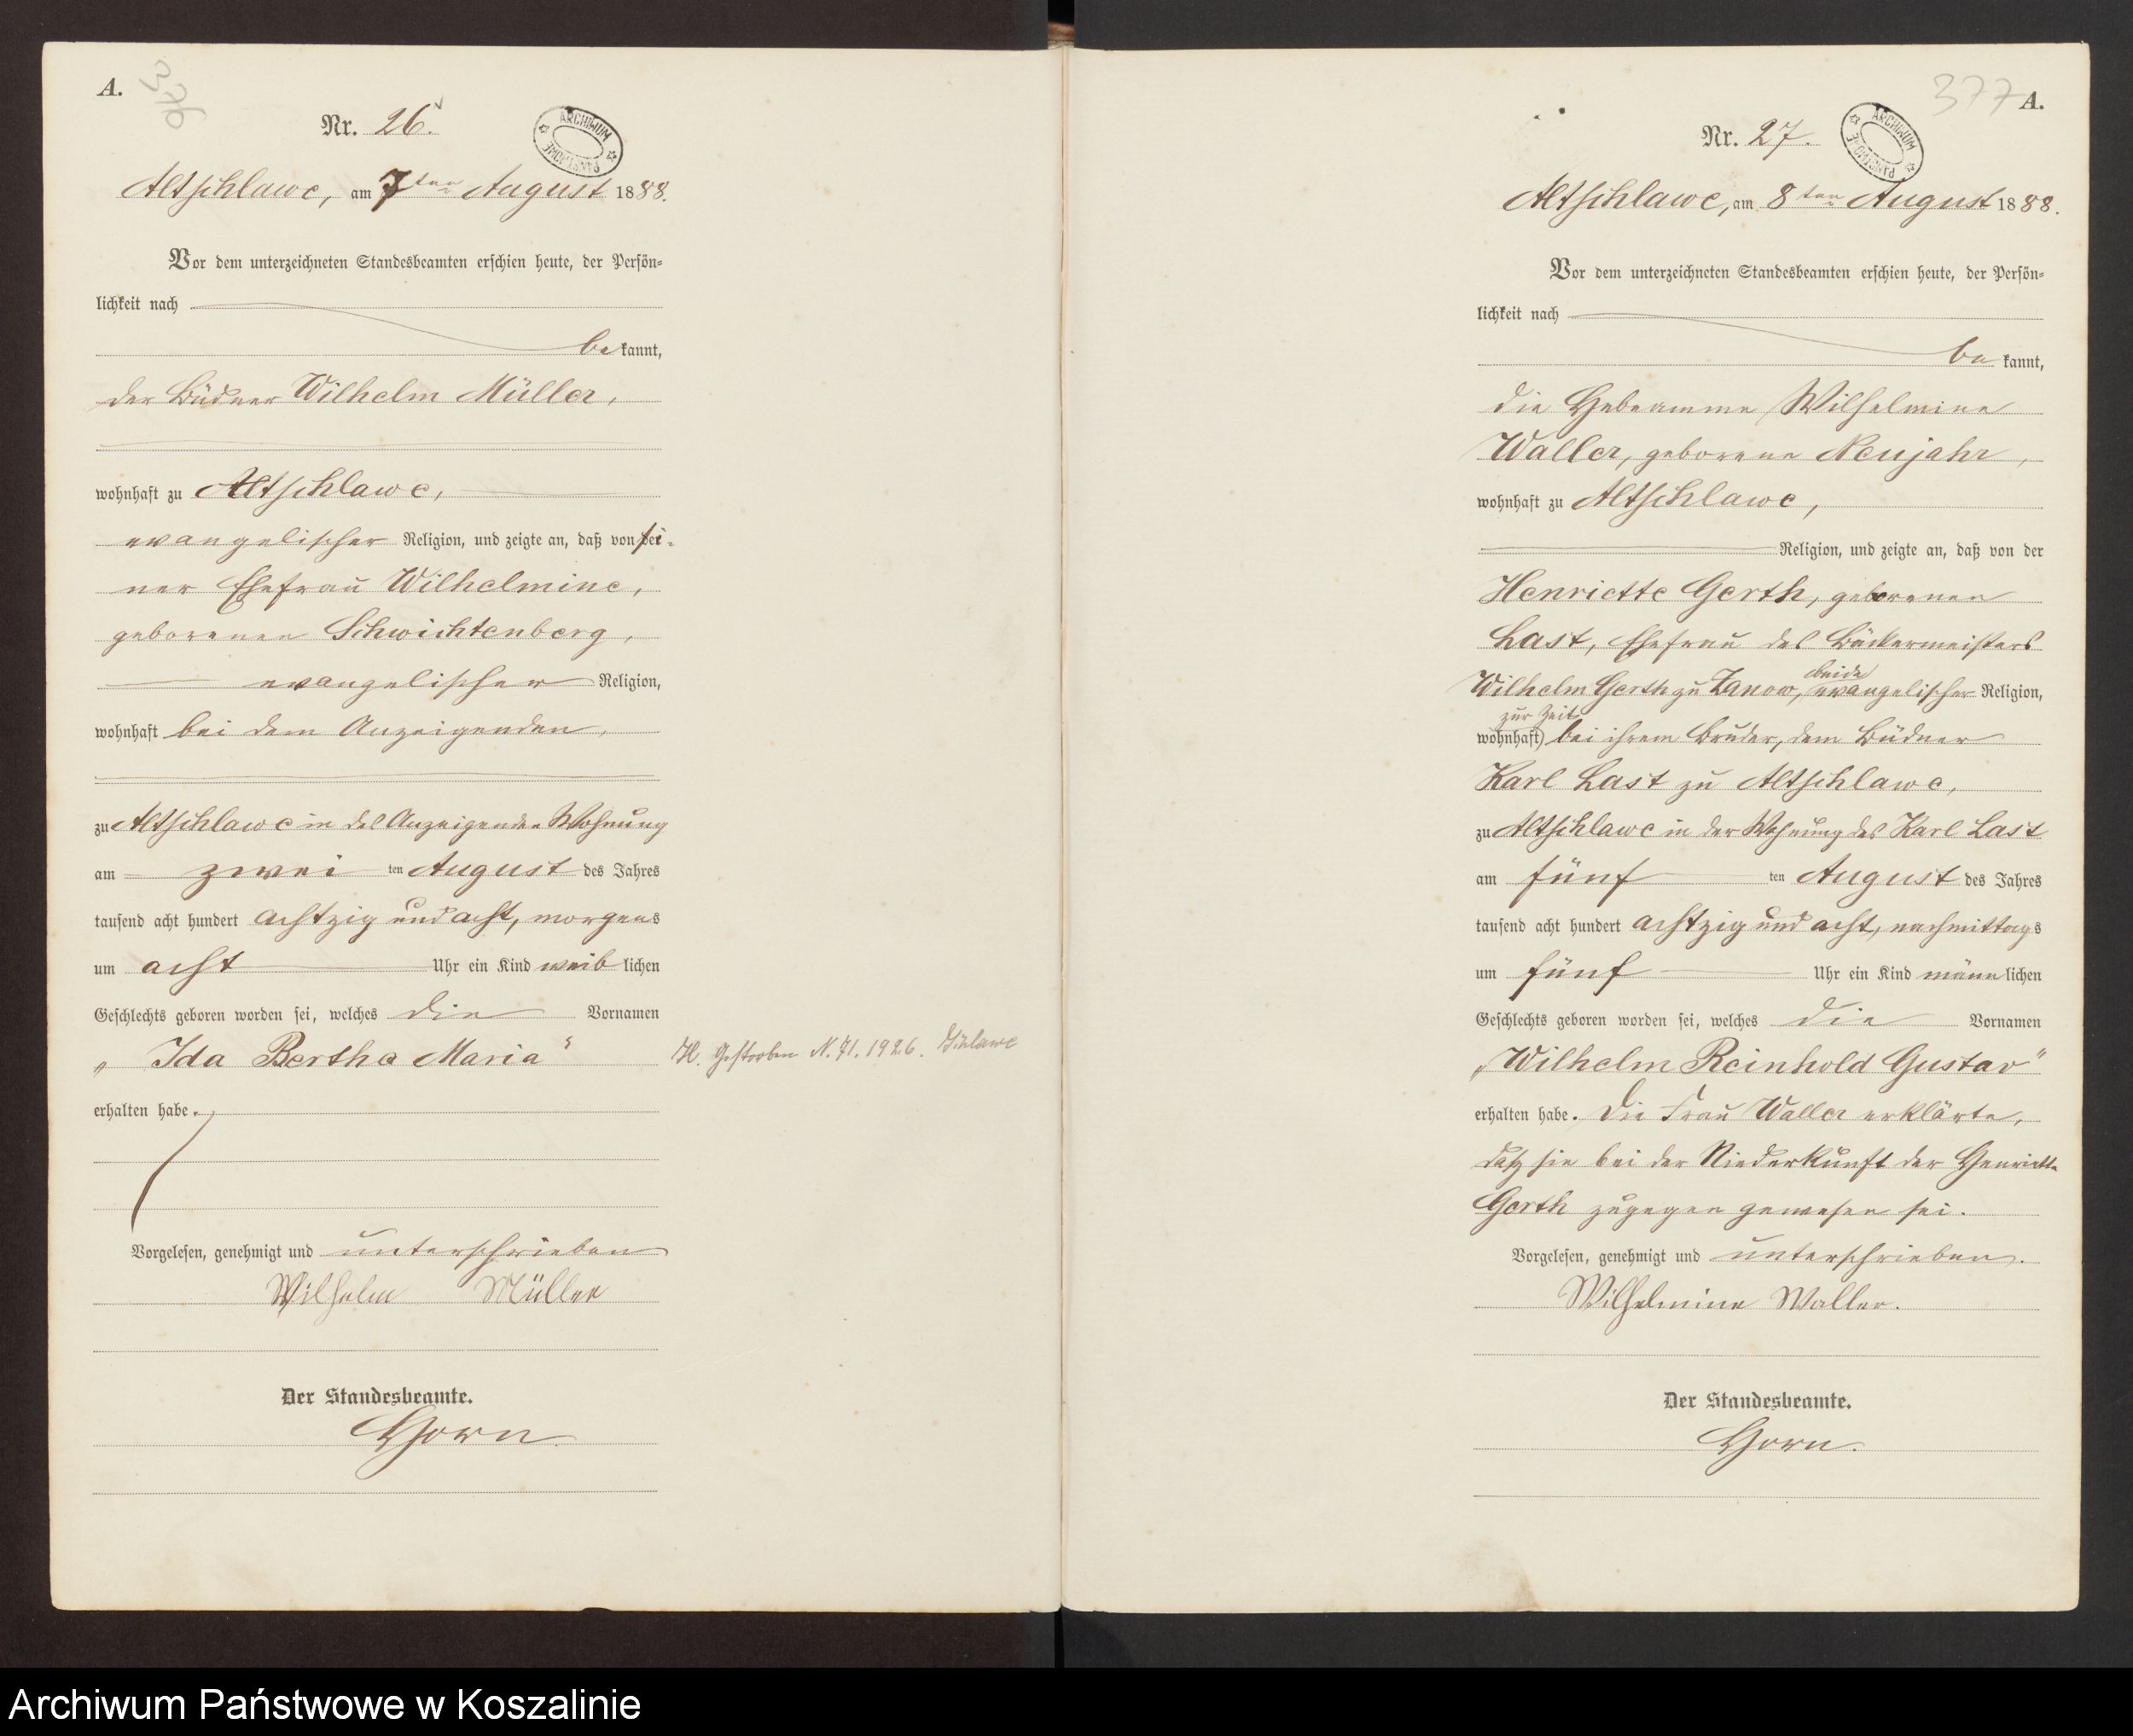 A.
376
Nr. 26.
ARCHIWUM PAŃSTWOWE
Altschlawe, am 7ten August 1888.
Vor dem unterzeichneten Standesbeamten erschien heute, der Persön-
lichkeit nach
bekannt,
der Büdner Wilhelm Müller,
wohnhaft zu Altschlawe,
evangelischer Religion, und zeigte an, daß von sei-
ner Ehefrau Wilhelmine,
geborenen Schwichtenberg,
evangelischer Religion,
wohnhaft bei dem Anzeigenden,
zu Altschlawe in des Anzeigenden Wohnung
am zwei ten August des Jahres
tausend acht hundert achtzig und acht, morgens
um acht Uhr ein Kind weiblichen
Geschlechts geboren worden sei, welches die Vornamen
„Ida Bertha Maria“
H. Gestorben N. 71. 1926. Schlawe
erhalten habe.
Vorgelesen, genehmigt und unterschrieben
Wilhelm Müller
Der Standesbeamte.
Horn.
377
A.
Nr. 27.
ARCHIWUM PAŃSTWOWE
Altschlawe, am 8ten August 1888.
Vor dem unterzeichneten Standesbeamten erschien heute, der Persön-
lichkeit nach
bekannt,
die Hebeamme Wilhelmine
Waller, geborene Neujahr,
wohnhaft zu Altschlawe,
Religion, und zeigte an, daß von der
Henriette Gerth, geborenen
Last, Ehefrau des Bäckermeisters
Wilhelm Gerth zu Zanow, beide evangelischer Religion,
zur Zeit
wohnhaft) bei ihrem Bruder, dem Büdner
Karl Last zu Altschlawe,
zu Altschlawe in der Wohnung des Karl Last
am fünf ten August des Jahres
tausend acht hundert achtzig und acht, nachmittags
um fünf Uhr ein Kind männlichen
Geschlechts geboren worden sei, welches die Vornamen
„Wilhelm Reinhold Gustav“
erhalten habe. Die Frau Waller erklärte,
daß sie bei der Niederkunft der Henriette
Gerth zugegen gewesen sei.
Vorgelesen, genehmigt und unterschrieben.
Wilhelmine Waller.
Der Standesbeamte.
Horn.
Archiwum Państwowe w Koszalinie